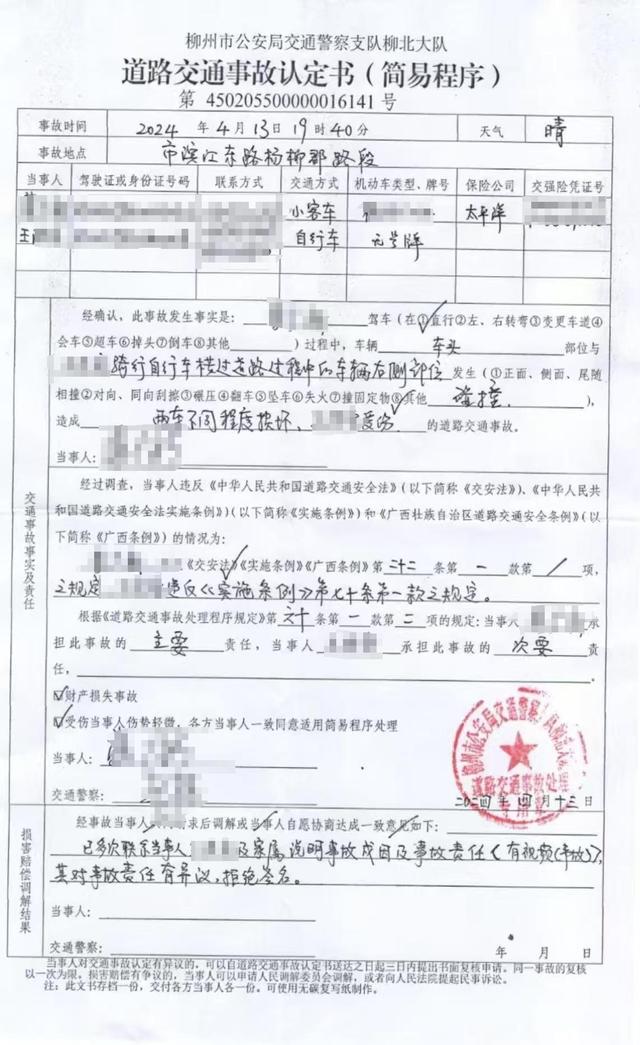 柳州市公安局交通警察支队柳北大队
道路交通事故认定书（简易程序）
第 450205500000016141 号
事故时间 2024 年 4 月 13 日 19 时 40 分 天气 晴
事故地点 市滨江东路杨柳郡路段
当事人 驾驶证或身份证号码 联系方式 交通方式 机动车类型、牌号 保险公司 交强险凭证号
小客车 太平洋
王 自行车 无号牌
交通事故事实及责任
经确认，此事故发生事实是： 驾车（在①直行②左、右转弯③变更车道④
会车⑤超车⑥掉头⑦倒车⑧其他 ）过程中，车辆 车头 部位与
骑行自行车横过道路过程中的车辆右侧部位 发生（①正面、侧面、尾随
相撞②对向、同向刮擦③碾压④翻车⑤坠车⑥失火⑦撞固定物⑧其他 碰撞 ），
造成 两车不同程度损坏、 受伤 的道路交通事故。
当事人：
经过调查，当事人违反《中华人民共和国道路交通安全法》（以下简称《交安法》）、《中华人民共
和国道路交通安全法实施条例》（以下简称《实施条例》）和《广西壮族自治区道路交通安全条例》（以
下简称《广西条例》）的情况为：
《交安法》《实施条例》《广西条例》第 二十二 条第 一 款第 / 项，
之规定 违反《实施条例》第七十条第一款之规定。
根据《道路交通事故处理程序规定》第 六十 条第 一 款第 二 项的规定：当事人 承
担此事故的 主要 责任，当事人 承担此事故的 次要 责
任，
☑财产损失事故
☑受伤当事人伤势轻微，各方当事人一致同意适用简易程序处理
当事人：
交通警察： 二〇二四年四月十三日
柳州市公安局交通警察支队柳北大队
道路交通事故处理
专用章
损害赔偿调解结果
经事故当事人 请求后调解或当事人自愿协商达成一致意见如下：
已多次联系当事人 及家属说明事故成因及事故责任（有视频（事故）），
其对事故责任有异议，拒绝签名。
当事人：
交通警察： 年 月 日
当事人对交通事故认定有异议的，可以自道路交通事故认定书送达之日起三日内提出书面复核申请。同一事故的复核
以一次为限。损害赔偿有争议的，当事人可以申请人民调解委员会调解，或者向人民法院提起民事诉讼。
注：此文书存档一份，交付各方当事人各一份。可使用无碳复写纸制作。